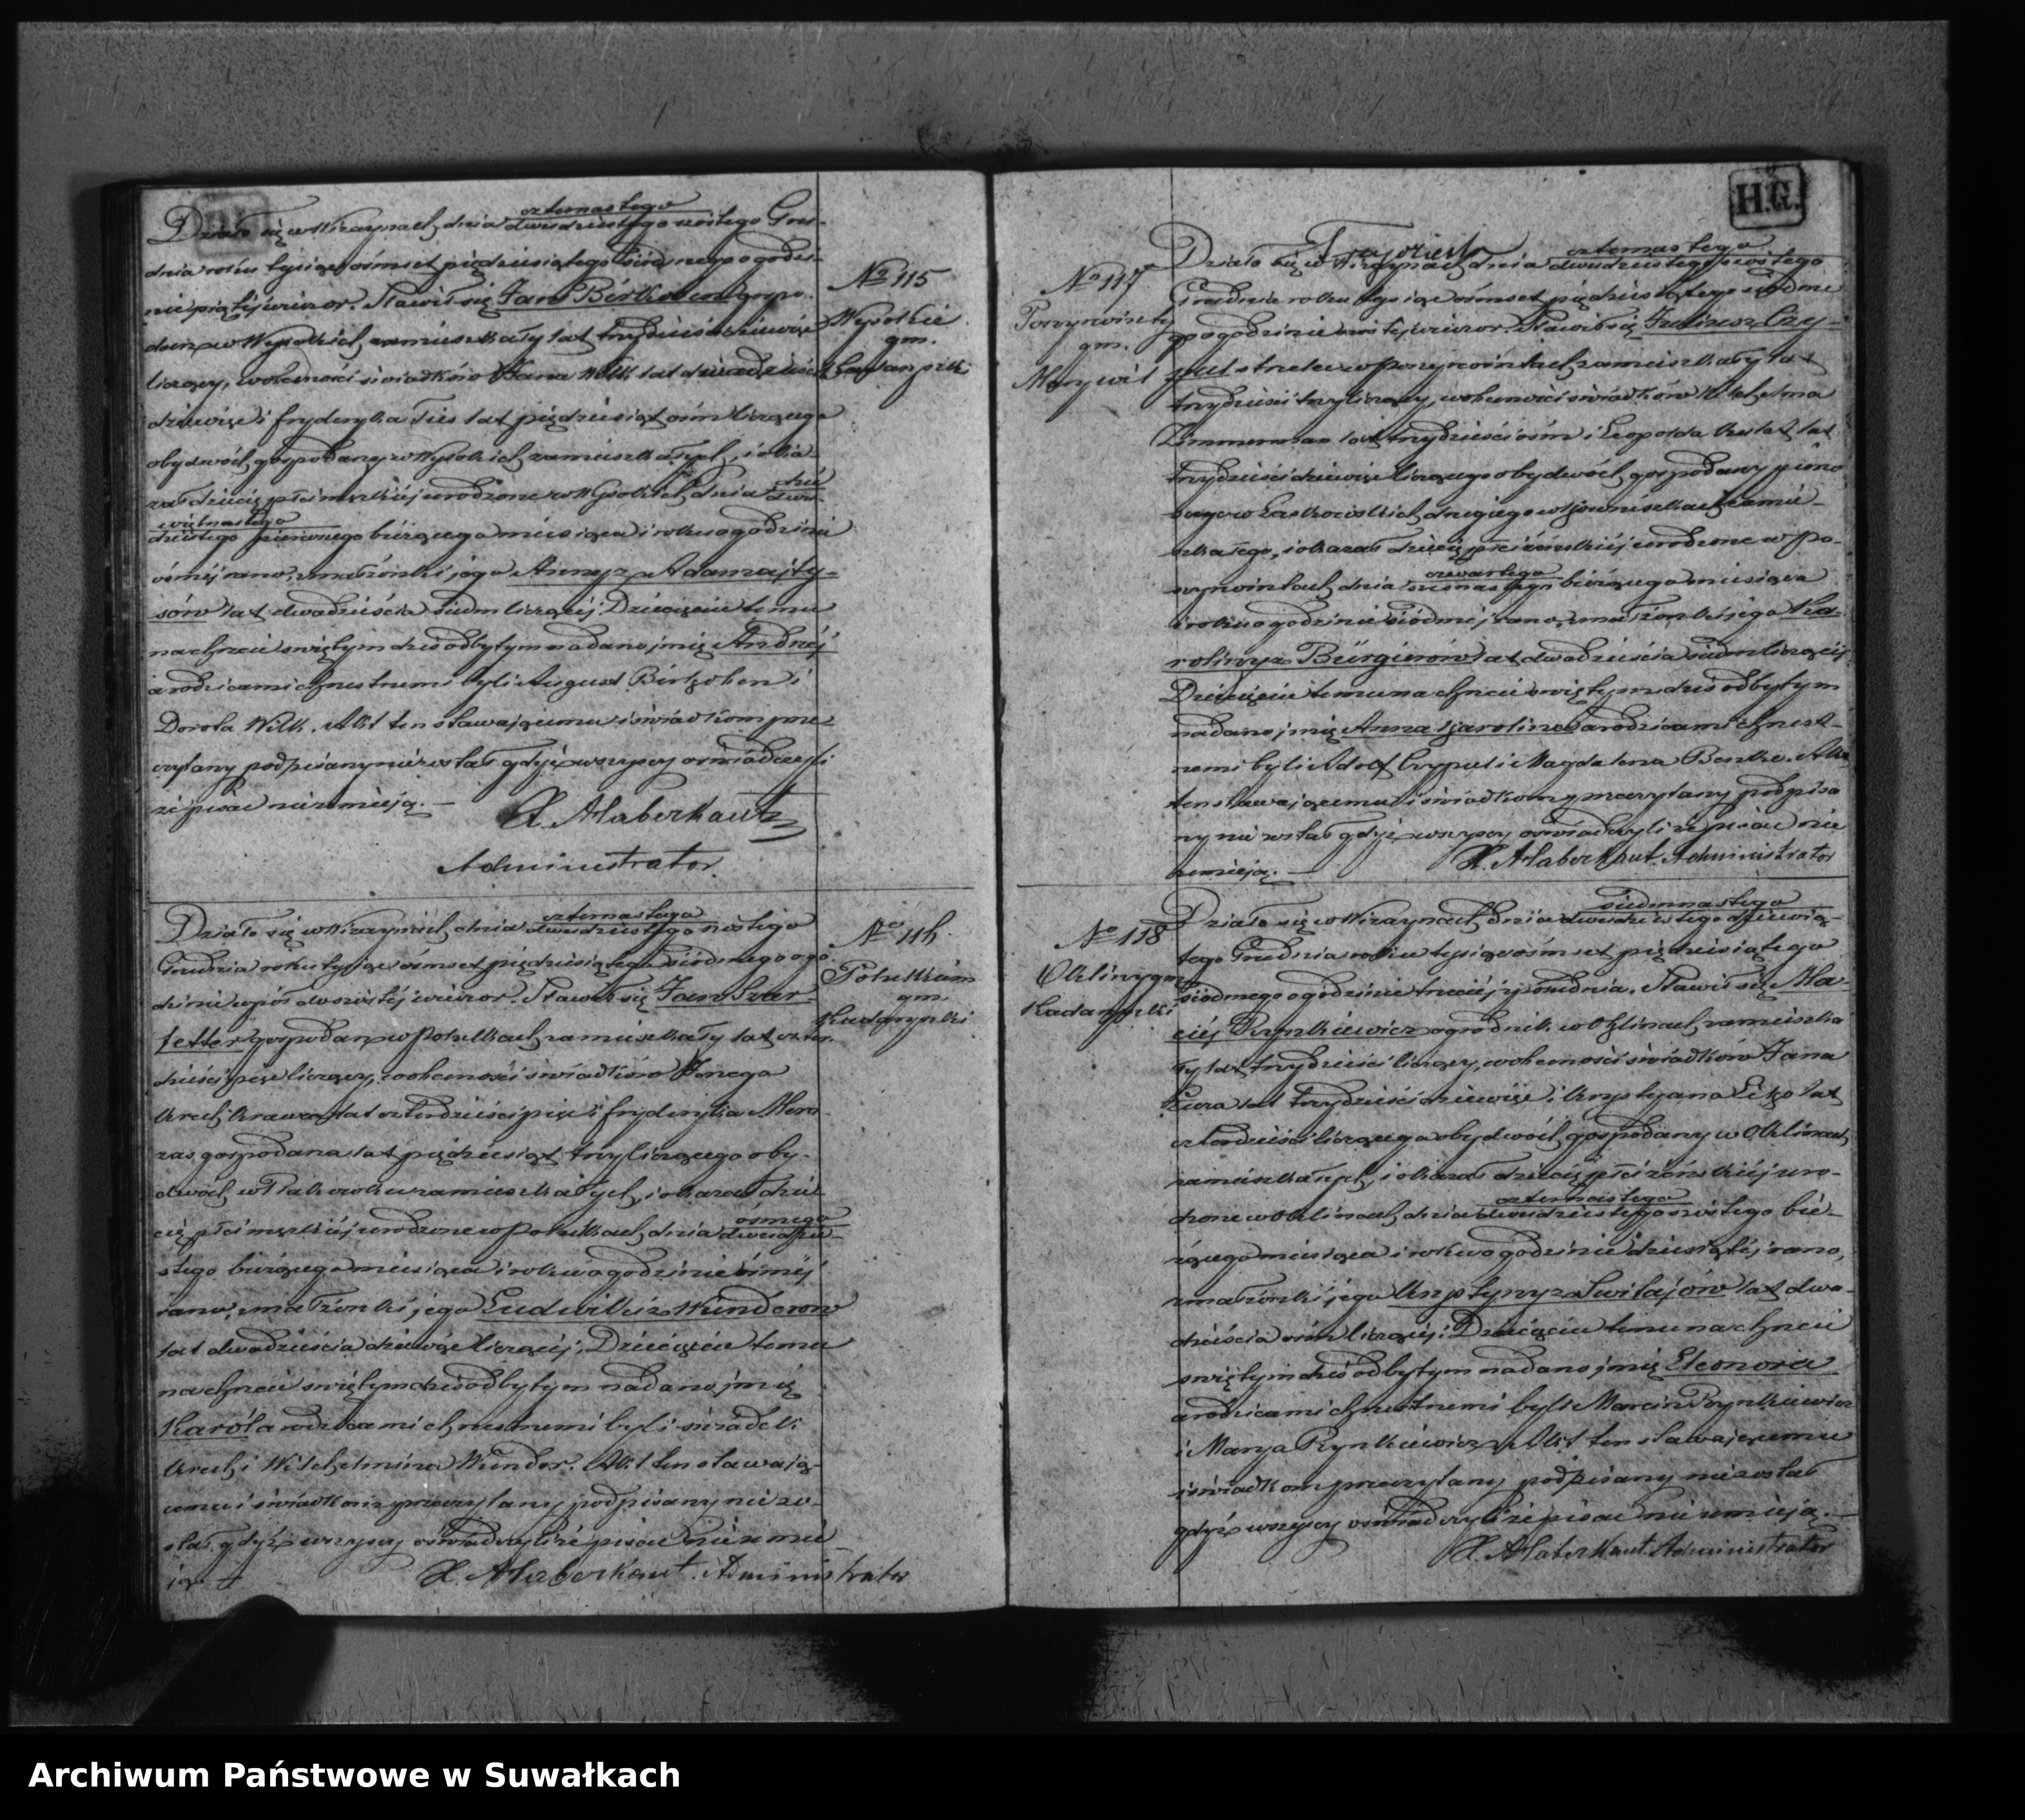 czternastego
Działo się w Wiżaynach dnia dwudziestego szóstego Gru-
dnia roku tysiąc ośmset pięćdziesiątego siódmego o godzi-
nie piątej wieczor. Stawił się Jan Birkoben gospo-
darz w Wysokich zamieszkały lat trzydzieści dziewięć
liczący, w obecności świadków Jana Wilk lat dwadzieścia
dziewięć i Fryderyka Ties lat pięćdziesiąt ośm liczącego
obydwóch gospodarzy w Wysokich zamieszkałych, i oka-
zał dziecię płci męzkiéj urodzone w Wysokich dnia dwu-
dzie
więtnastego
dziestego pierwszego bieżącego miesiąca i roku o godzinie
ósméj rano, z małżonki jego Anny z Adamajty-
sów lat dwadzieścia siedm liczącéj. Dziecięciu temu
na chrzcie świętym dziś odbytym nadano jmię Andrzéj
a rodzicami chrzestnemi byli August Birkoben i
Dorota Wilk. Akt ten stawającemu i świadkom prze-
czytany podpisany niezostał gdyż wszyscy oświadczyli
że pisać nieumieją. —
X. A Haberkant
Administrator
No 115
Wysokie
gm.
Kadaryszki
czternastego
Działo się w Wiżaynach dnia dwudziestego szóstego
Grudnia roku tysiąc ośmset pięćdziesiątego siódmego o go-
dzinie wpół do szóstéj wieczor. Stawił się Jan Szar-
fetter gospodarz w Potułkach zamieszkały lat czter-
dzieści pięć liczący, w obecności świadków
Krech Krawca lat czterdzieści pięć i Fryderyka
gospodarza lat pięćdziesiąt trzy liczącego oby-
dwóch w zamieszkałych, i okazał dzie-
ósmego
cię płci męzkiéj urodzone w dnia dwudzie-
stego bieżącego miesiąca i roku o godzinie ósméj
rano, z małżonki jego Ludwiki z Wunderow
lat dwadzieścia dziewięć liczącéj. Dziecięciu temu
na chrzcie świętym dziś odbytym nadano jmię
Karól a rodzicami chrzestnemi byli świadek
Krech i Wilchelmina Wunder. Akt ten stawają-
cemu i świadkom przeczytany podpisany nie zo-
stał, gdyż wszyscy oświadczyli że pisać nieumie-
ją. —
X. A Haberkant. Administrator
No 116.
gm.
Kadaryszki
H.G.
No 117
gm.
Marywil
czternastego
Działo się w Wiżaynach dnia dwudziestego szóstego
Grudnia roku tysiąc ośmset pięćdziesiątego siódme
go o godzinie szóstéj wieczor. Stawił się Juliusz Czy-
pul strelec w zamieszkały lat
trzydzieści trzy liczący, w obecności świadków Wilchelma
Zimmerman lat trzydzieści ośm i Leopolda lat
trzydzieści dziewięć liczącego obydwóch gospodarzy pierw
szego w drugiego w zamie-
szkałego, i okazał dziecię płci żeńskiéj urodzone w Po-
czwartego
dnia szesnastego bieżącego miesiąca
i roku o godzinie siódméj rano, z małżonki jego Ka-
roliny z Bürgierów lat dwadzieścia siedm liczącéj
Dziecięciu temu na chrzcie świętym dziś odbytym
nadano jmię Anna Karolina a rodzicami chrzest-
nemi byli Adolf Czypul i Magdalena Benkie. Akt
ten stawającemu i świadkom przeczytany podpisa
ny nie został gdyż wszyscy oświadczyli że pisać nie
umieją. —
X. A Haberkant. Administrator
No 118
Okliny gm.
Kadaryszki
siedmnastego
Działo się w Wiżaynach dnia dwudziestego dziewią-
tego Grudnia roku tysiąc ośmset pięćdziesiątego
siódmego o godzinie trzeciéj z południa. Stawił się Ma-
ciéj Rynkiewicz ogrodnik w Oklinach zamieszka
ły lat trzydzieści liczący, w obecności świadków Jana
lat trzydzieści dziewięć i Krystyana lat
czterdzieści liczącego obydwóch gospodarzy w Oklinach
zamieszkałych, i okazał dziecię płci żeńskiéj uro-
czternastego
dzone w Oklinach dnia dwudziestego szóstego bie-
żącego miesiąca i roku o godzinie dziesiątéj rano,
z małżonki jego Krystyny z Switajów lat dwa-
dzieścia ośm liczącéj. Dziecięciu temu na chrzcie
świętym dziś odbytym nadano jmię Eleonora
a rodzicami chrzestnemi byli Marcin Rynkiewicz
i Marya Rynkiewicz. Akt ten stawającemu
i świadkom przeczytany podpisany niezostał
gdyż wszyscy oświadczyli że pisać nie umieją. —
X. A Haberkant. Administrator
Archiwum Państwowe w Suwałkach